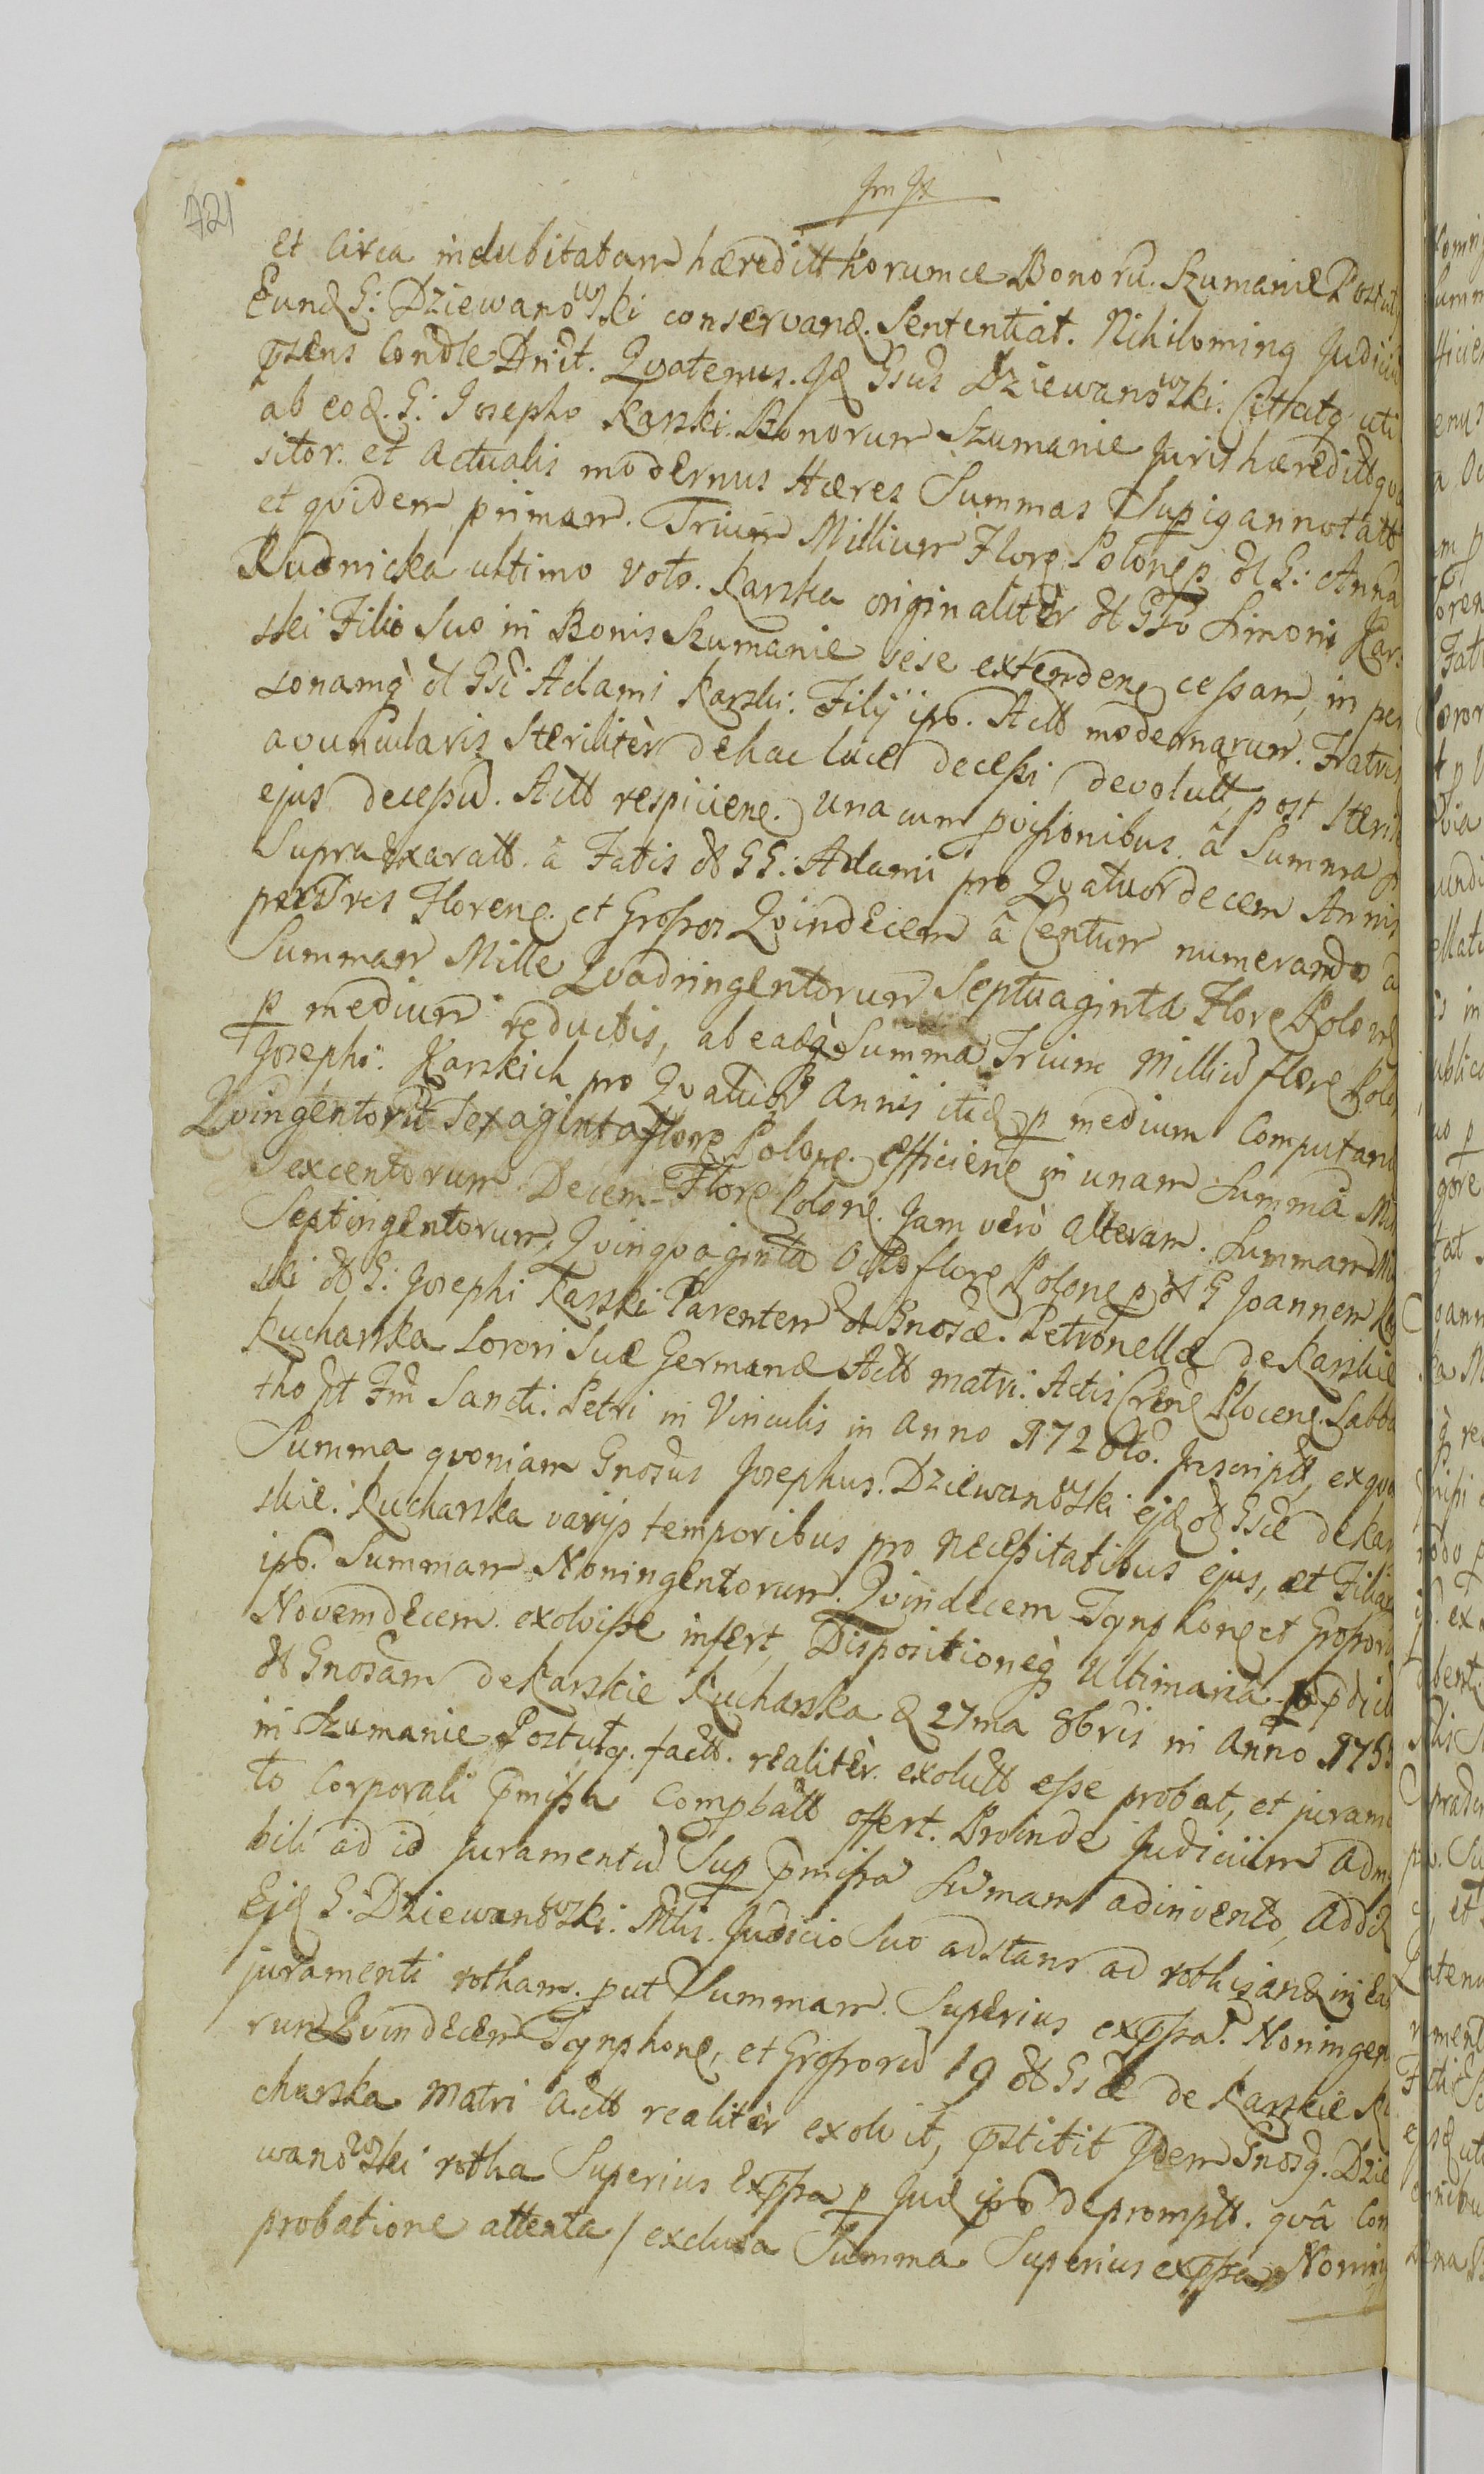 721
Im Jt
et circa indubitatam hæreditt horumce Bonorū. Szumanie Postulꝗ
Eundꝫ G: Dziewanowski conservandꝫ. Sententiat. Nihilominꝗ Judiciū
pñens Condle Dñit. Qvatenus. Idꝫ Gsus Dziewanowski. Cittatꝗ uti
ab eodꝫ. G: Josepho Karski. Bonorum Szumanie Juris hæreditt qvæ
sitor. et Actualis modernus Hæres Summas Supiꝗ annotatt
et qvidem primam. Trium Millium Florꝫ Polonꝫ p̲ olt G: Anna
Rudnicka ultimo voto. Karska originalitèr olt Gso Simoni Kar
ski Filio Suo in Bonis Szumanie sese extendenꝫ cessam, in per
sonamꝗ̀ olt Gsi Adami Karski. Filij ipō. Actt modernarum. Fratris
avuncularis Sterilitèr de hac luce decessi devolutt, post steril
ejus decessū. Actt respicienꝫ. una cum pvisionibus. â Summa p
Supra exaratt. â Fatis olt GG: Adami pro Qvatuordecem Annis
per tres Florenꝫ. et Grossos Qvindecem â Centum numerando a
Summam Mille Qvadringentorum Septuaginta Florꝫ Polonꝫ
p̲ medium reductis, ab eadꝗ̀ Summa Trium Milliū florꝫ Polo
Josephi: Karskich pro Qvatuor annis itidꝫ p̲ medium Computan
Qvingentorū Sexaginta florꝫ Polonꝫ. efficienꝫ in unam Summā Mi
Sexcentorum Decem. Florꝫ Polonꝫ. Jam verò alteram. Summam Mi
Septingentorum, Qvinqvaginta Octo florꝫ Polonꝫ p̲ olt G Joannem Kar
ski olt G: Josephi Karski Parentem olt Gnosæ. Petronellæ de Karskie
Kucharska Sorori Suæ Germanæ Actt matri. Actis Crenꝫ Plocenꝫ. Sabba
tho pt Fm̃ Sancti. Petri in Vinculis in Anno 1728vo. Inscriptt, ex qva
Summa qvoniam Gnosus Josephus. Dziewanowski ejdꝫ olt Gsæ de Kar
skie. Kucharska varijs temporibus pro necessitatibus ejus, et Filiar
ipō. Summam Noningentorum. Qvindecem Tynphonꝫ et Grossorū
Novemdecem. exolvisse infert, Dispositioneꝗ̀ Ultimaria p̲ pdict
olt Gnosam de Karskie Kucharska ꝫ 27ma 8bris in Anno 175
in Szumanie Postulꝗ. factt. realitèr. exolutt esse probat, et jurame
to Corporali p̃missa Compbatt offert. Proinde Judicium adm
bili ad id Juramentū Sup p̃missa Sumam adinvento, addꝫ
Ejdꝫ G. Dziewanowski. Mlis. Judicio Suo adstans ad rothisandꝫ in ea
juramenti rotham. put Summam. Superius exp̃ssa. Noningen
rum Qvindecem Tynphonꝫ, et Grossorū 19 olt Gsæ de Karskie Ku
charska Matri Actt realitèr exolvit, p̃stitit Idem Gnosꝗ. Dzie
wanowski rotha Superius Exp̃ssa p̲ Judꝫ ipō depromptt. qvâ Com
probatione attenta / exclusa Summa Superius exp̃ssa Nonin